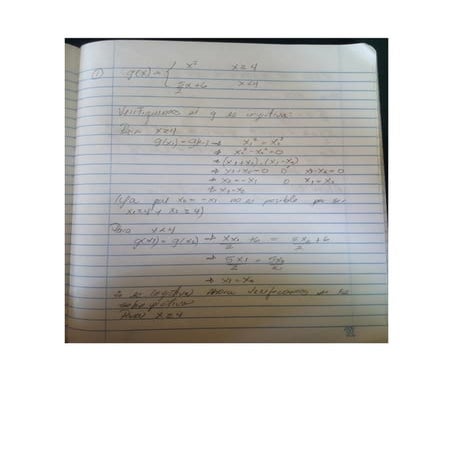 ① g(x) = { x² x ≥ 4
5/2 x + 6 x < 4
Verifiquemos si g es inyectiva:
Para x ≥ 4
g(x₁) = g(x₂) → x₁² = x₂²
→ x₁² - x₂² = 0
→ (x₁+x₂).(x₁-x₂)
→ x₁+x₂=0 o x₁-x₂=0
→ x₂=-x₁ o x₁=x₂
→ x₁=x₂
(Ya que x₂ = -x₁ no es posible por ser
x₁≥4 y x₂ ≥ 4)
Para x < 4
g(x₁) = g(x₂) → 5x₁/2 + 6 = 5x₂/2 + 6
→ 5x₁/2 = 5x₂/2
→ x₁ = x₂
∴ es inyectiva Ahora verifiquemos si es
sobreyectiva
Para x ≥ 4